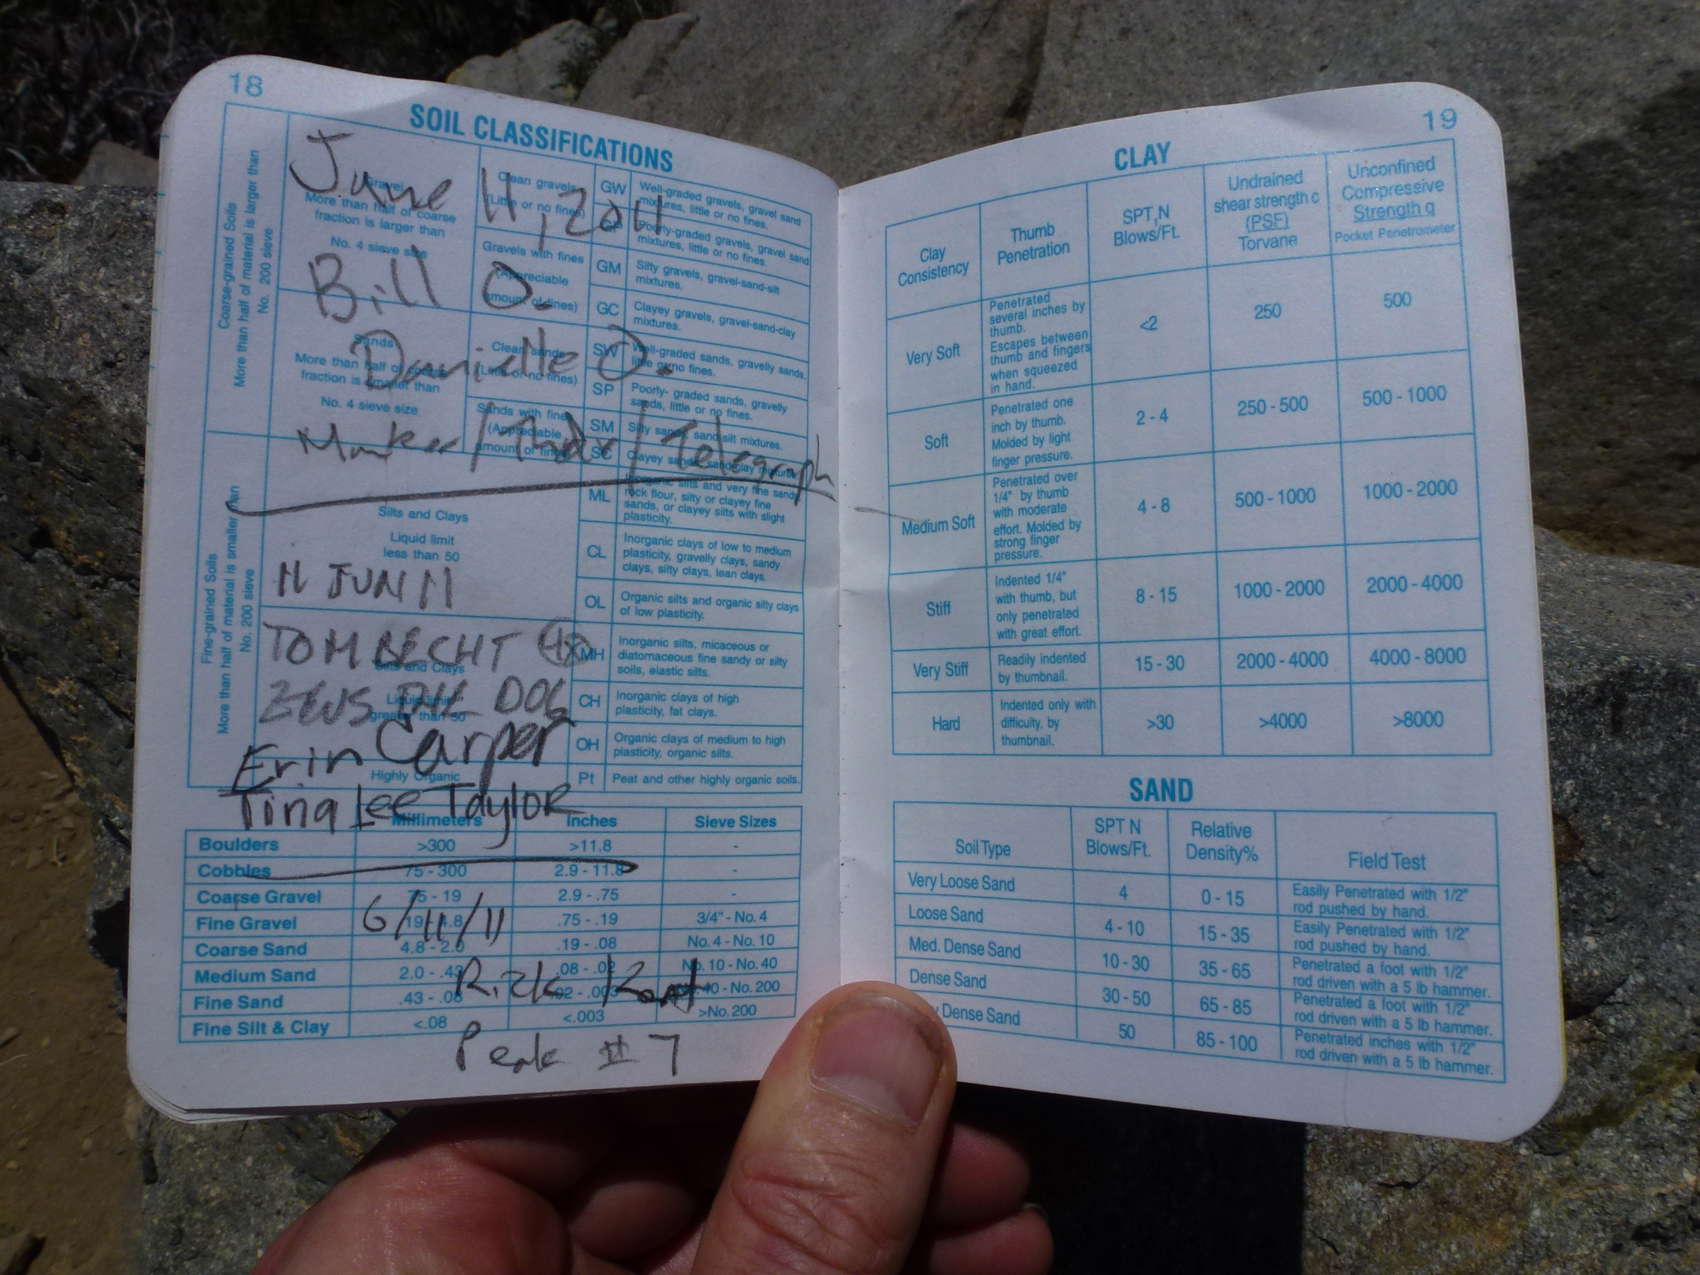 18
SOIL CLASSIFICATIONS
Coarse-grained Soils
More than half of material is larger than
No. 200 sieve
Gravel
More than half of coarse
fraction is larger than
No. 4 sieve size
Clean gravels
(Little or no fines)
GW
Well-graded gravels, gravel sand
mixtures, little or no fines.
Poorly-graded gravels, gravel sand
mixtures, little or no fines.
Gravels with fines
(Appreciable
amount of fines)
GM
Silty gravels, gravel-sand-silt
mixtures.
GC
Clayey gravels, gravel-sand-clay
mixtures.
Sands
More than half of coarse
fraction is smaller than
No. 4 sieve size
Clean sands
(Little or no fines)
SW
Well-graded sands, gravelly sands,
little or no fines.
SP
Poorly- graded sands, gravelly
sands, little or no fines.
Sands with fines
(Appreciable
amount of fines)
SM
Silty sands, sand-silt mixtures.
SC
Clayey sands, sand-clay mixtures.
June 11, 2011
Bill O.
Danielle O.
/ Telegraph
Fine-grained Soils
More than half of material is smaller than
No. 200 sieve
Silts and Clays
Liquid limit
less than 50
ML
Inorganic silts and very fine sands,
rock flour, silty or clayey fine
sands, or clayey silts with slight
plasticity.
CL
Inorganic clays of low to medium
plasticity, gravelly clays, sandy
clays, silty clays, lean clays.
OL
Organic silts and organic silty clays
of low plasticity.
Silts and Clays
Liquid limit
greater than 50
MH
Inorganic silts, micaceous or
diatomaceous fine sandy or silty
soils, elastic silts.
CH
Inorganic clays of high
plasticity, fat clays.
OH
Organic clays of medium to high
plasticity, organic silts.
Highly Organic
Pt
Peat and other highly organic soils.
11 JUN 11
TOM BECHT
ZEUS THE DOG
Erin Carper
Tina Lee Taylor
Millimeters Inches Sieve Sizes
Boulders >300 >11.8 -
Cobbles 75 - 300 2.9 - 11.8 -
Coarse Gravel 75 - 19 2.9 - .75 -
Fine Gravel 19 - 4.8 .75 - .19 3/4" - No. 4
Coarse Sand 4.8 - 2.0 .19 - .08 No. 4 - No. 10
Medium Sand 2.0 - .43 .08 - .02 No. 10 - No. 40
Fine Sand .43 - .08 .02 - .003 No. 40 - No. 200
Fine Silt & Clay <.08 <.003 >No. 200
6/11/11
Rick Kent
Peak #7
19
CLAY
Clay
Consistency
Thumb
Penetration
SPT, N
Blows/Ft.
Undrained
shear strength c
(PSF)
Torvane
Unconfined
Compressive
Strength q
Pocket Penetrometer
Very Soft
Penetrated
several inches by
thumb.
Escapes between
thumb and fingers
when squeezed
in hand.
<2
250
500
Soft
Penetrated one
inch by thumb.
Molded by light
finger pressure.
2 - 4
250 - 500
500 - 1000
Medium Soft
Penetrated over
1/4" by thumb
with moderate
effort. Molded by
strong finger
pressure.
4 - 8
500 - 1000
1000 - 2000
Stiff
Indented 1/4"
with thumb, but
only penetrated
with great effort.
8 - 15
1000 - 2000
2000 - 4000
Very Stiff
Readily indented
by thumbnail.
15 - 30
2000 - 4000
4000 - 8000
Hard
Indented only with
difficulty, by
thumbnail.
>30
>4000
>8000
SAND
Soil Type
SPT N
Blows/Ft.
Relative
Density%
Field Test
Very Loose Sand
4
0 - 15
Easily Penetrated with 1/2"
rod pushed by hand.
Loose Sand
4 - 10
15 - 35
Easily Penetrated with 1/2"
rod pushed by hand.
Med. Dense Sand
10 - 30
35 - 65
Penetrated a foot with 1/2"
rod driven with a 5 lb hammer.
Dense Sand
30 - 50
65 - 85
Penetrated a foot with 1/2"
rod driven with a 5 lb hammer.
Dense Sand
50
85 - 100
Penetrated inches with 1/2"
rod driven with a 5 lb hammer.